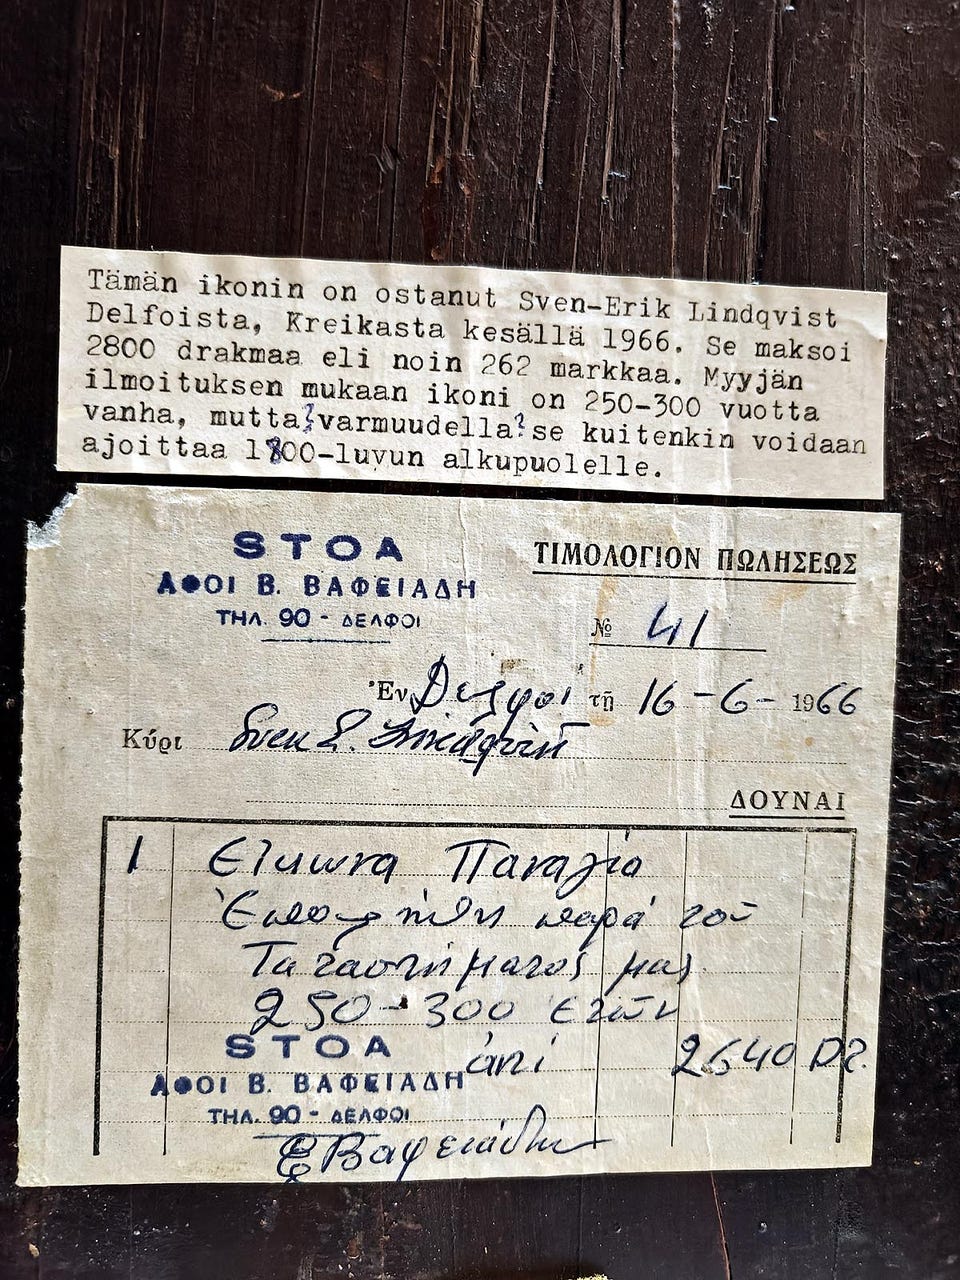 Tämän ikonin on ostanut Sven-Erik Lindqvist
Delfoista, Kreikasta kesällä 1966. Se maksoi
2800 drakmaa eli noin 262 markkaa. Myyjän
ilmoituksen mukaan ikoni on 250-300 vuotta
vanha, mutta?varmuudella?se kuitenkin voidaan
ajoittaa 1800-luvun alkupuolelle.
STOA
ΑΦΟΙ Β. ΒΑΦΕΙΑΔΗ
ΤΗΛ. 90 - ΔΕΛΦΟΙ
ΤΙΜΟΛΟΓΙΟΝ ΠΩΛΗΣΕΩΣ
№ 41
Ἐν Δελφοί τῇ 16-6-1966
Κύρι Sven E. Lindqvist
ΔΟΥΝΑΙ
1 Εικωνα Παναγία
παρά τοῦ
μας
250-300 ετῶν
STOA
ἀπί 2640 Dr.
ΑΦΟΙ Β. ΒΑΦΕΙΑΔΗ
ΤΗΛ. 90 - ΔΕΛΦΟΙ
Βαφειάδης